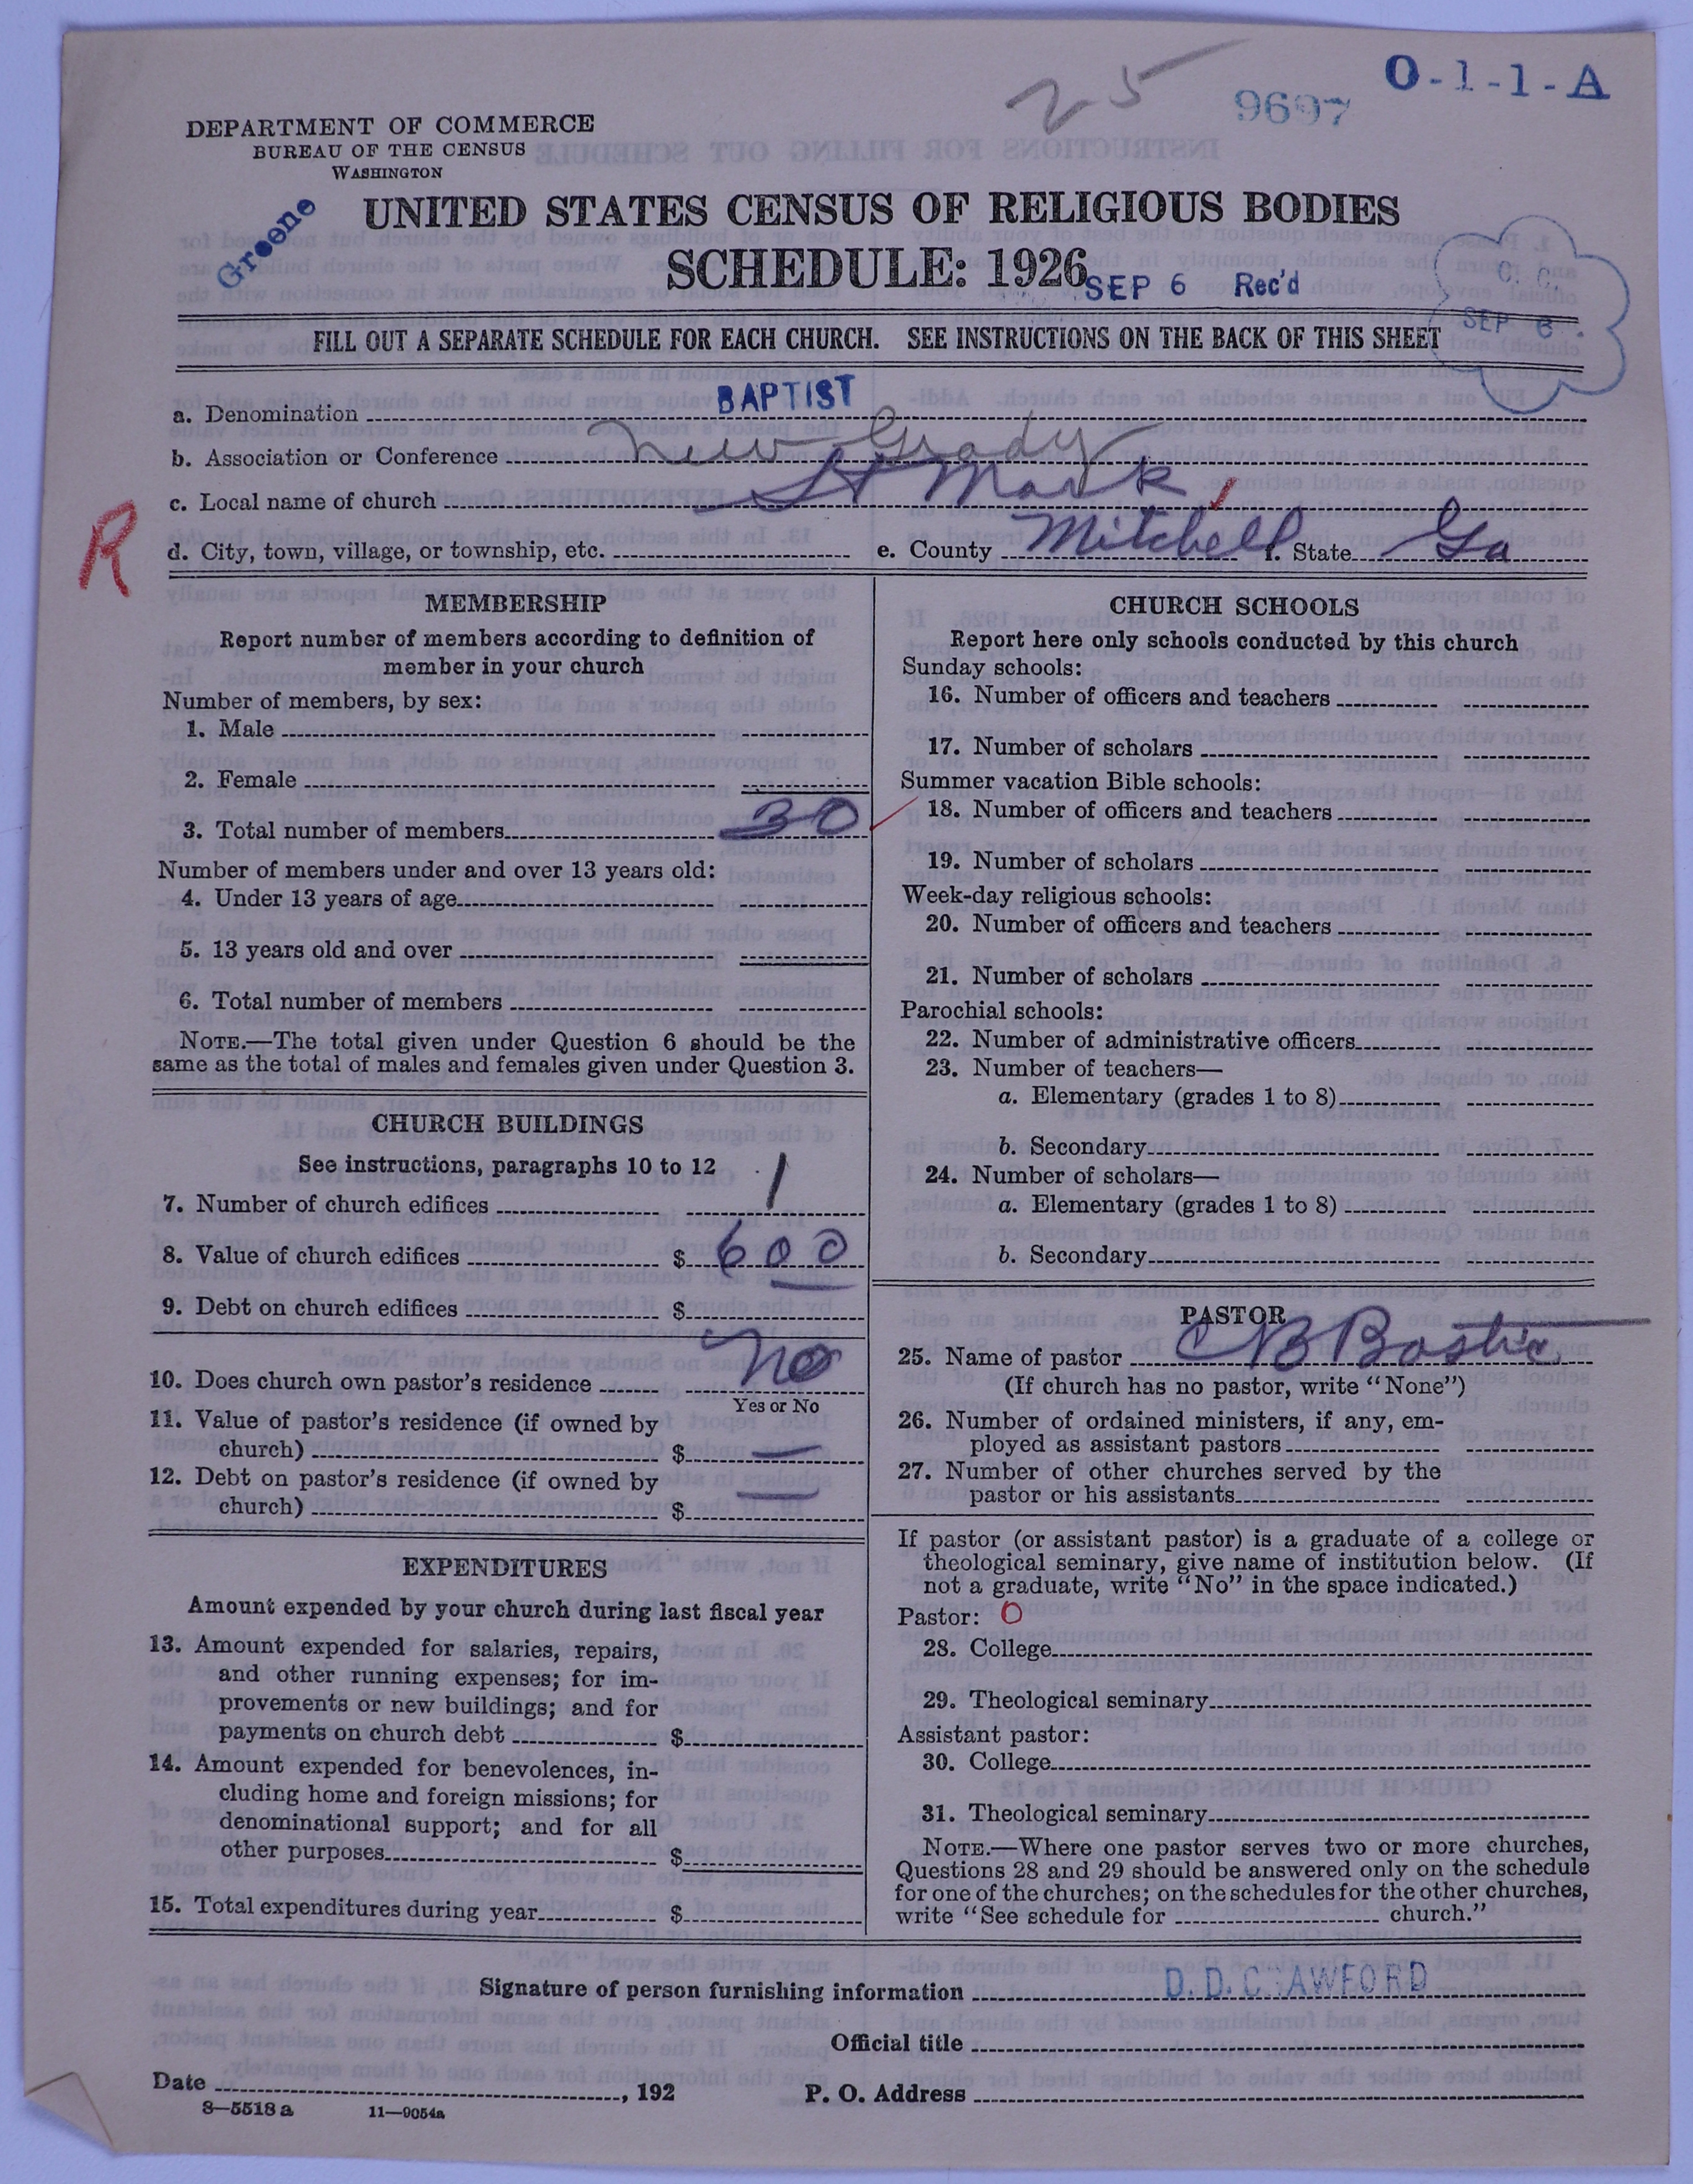 O-1-1-A
25
9697
DEPARTMENT OF COMMERCE
BUREAU OF THE CENSUS
WASHINGTON
Greene
UNITED STATES CENSUS OF RELIGIOUS BODIES
SCHEDULE: 1926
SEP 6 Rec'd
C. C.
SEP 6
FILL OUT A SEPARATE SCHEDULE FOR EACH CHURCH. SEE INSTRUCTIONS ON THE BACK OF THIS SHEET
a. Denomination BAPTIST
b. Association or Conference New Grady
c. Local name of church St Mark
R
d. City, town, village, or township, etc. e. County Mitchell f. State Ga
MEMBERSHIP
Report number of members according to definition of
member in your church
Number of members, by sex:
1. Male
2. Female
3. Total number of members 30
Number of members under and over 13 years old:
4. Under 13 years of age
5. 13 years old and over
6. Total number of members
NOTE.—The total given under Question 6 should be the
same as the total of males and females given under Question 3.
CHURCH BUILDINGS
See instructions, paragraphs 10 to 12
7. Number of church edifices 1
8. Value of church edifices $ 600
9. Debt on church edifices $
10. Does church own pastor's residence No
Yes or No
11. Value of pastor's residence (if owned by
church) $ —
12. Debt on pastor's residence (if owned by
church) $ —
EXPENDITURES
Amount expended by your church during last fiscal year
13. Amount expended for salaries, repairs,
and other running expenses; for im-
provements or new buildings; and for
payments on church debt $
14. Amount expended for benevolences, in-
cluding home and foreign missions; for
denominational support; and for all
other purposes $
15. Total expenditures during year $
CHURCH SCHOOLS
Report here only schools conducted by this church
Sunday schools:
16. Number of officers and teachers
17. Number of scholars
Summer vacation Bible schools:
18. Number of officers and teachers
19. Number of scholars
Week-day religious schools:
20. Number of officers and teachers
21. Number of scholars
Parochial schools:
22. Number of administrative officers
23. Number of teachers—
a. Elementary (grades 1 to 8)
b. Secondary
24. Number of scholars—
a. Elementary (grades 1 to 8)
b. Secondary
PASTOR
25. Name of pastor C B Bostic
(If church has no pastor, write "None")
26. Number of ordained ministers, if any, em-
ployed as assistant pastors
27. Number of other churches served by the
pastor or his assistants
If pastor (or assistant pastor) is a graduate of a college or
theological seminary, give name of institution below. (If
not a graduate, write "No" in the space indicated.)
Pastor: O
28. College
29. Theological seminary
Assistant pastor:
30. College
31. Theological seminary
NOTE.—Where one pastor serves two or more churches,
Questions 28 and 29 should be answered only on the schedule
for one of the churches; on the schedules for the other churches,
write "See schedule for church."
Signature of person furnishing information D. D. C AWFORD
Official title
Date , 192 P. O. Address
8—5518a 11—9054a